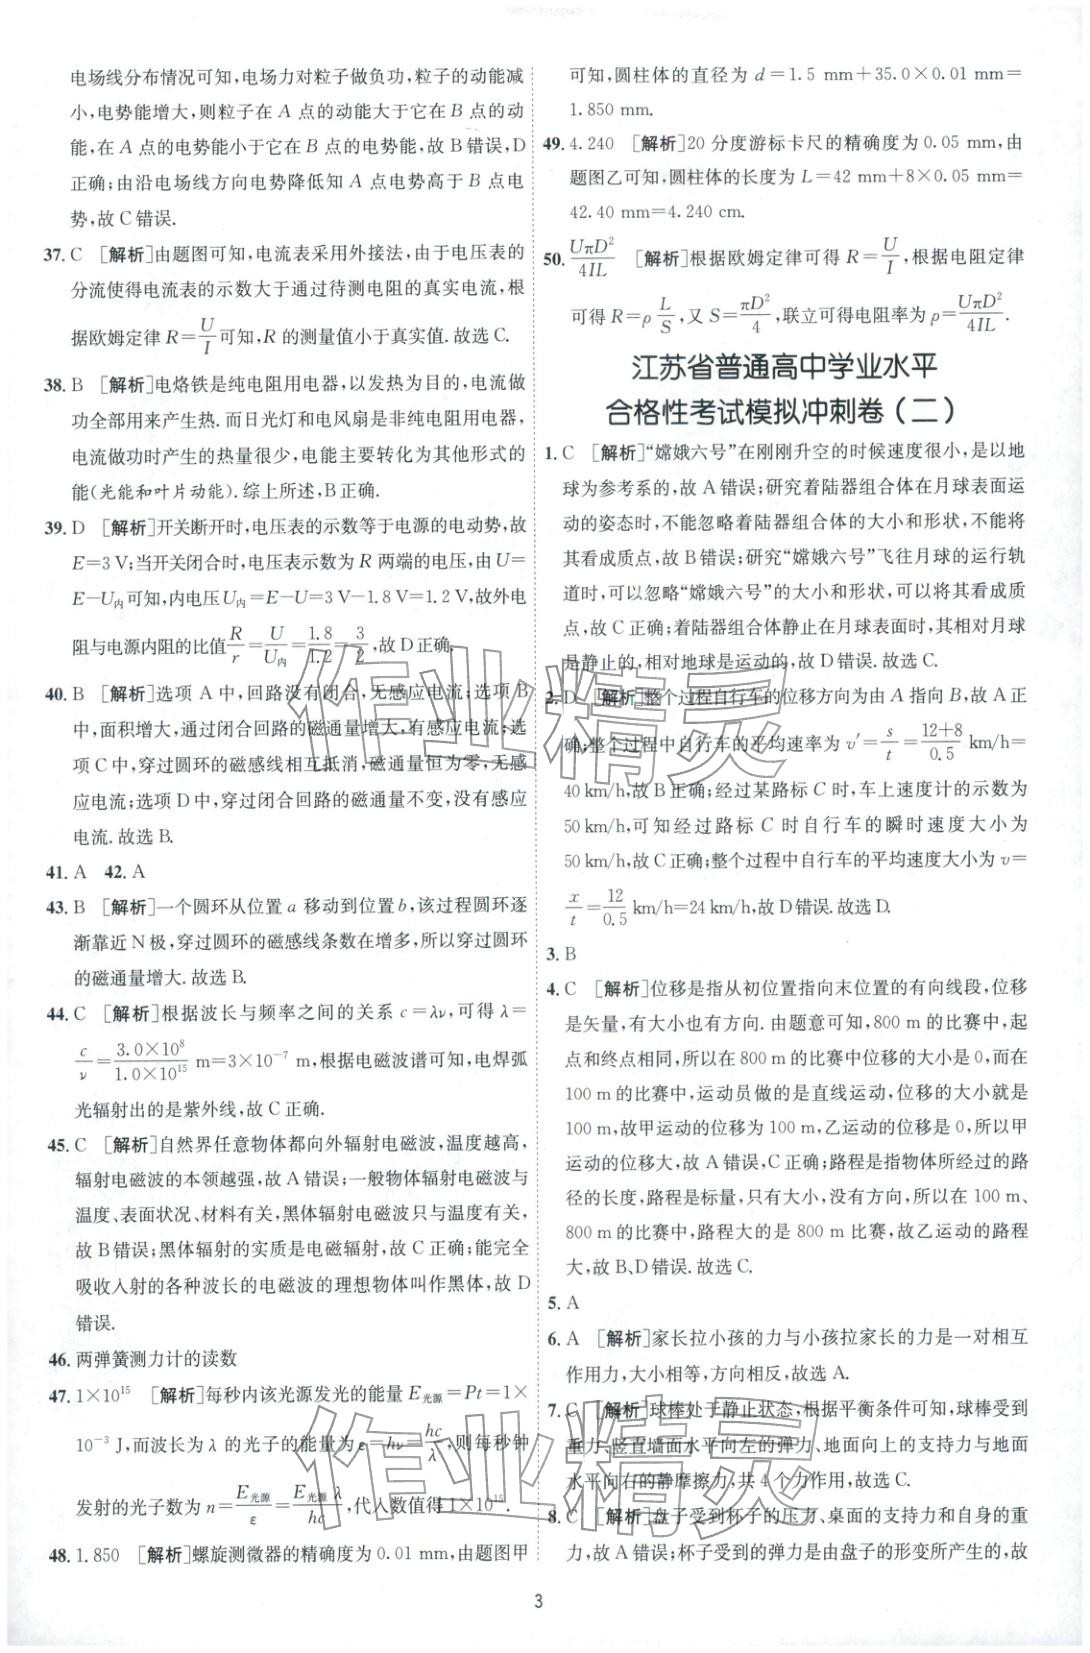 电场线分布情况可知,电场力对粒子做负功,粒子的动能减
小,电势能增大,则粒子在 A 点的动能大于它在 B 点的动
能,在 A 点的电势能小于它在 B 点的电势能,故 B 错误,D
正确;由沿电场线方向电势降低知 A 点电势高于 B 点电
势,故 C 错误.
37. C [解析]由题图可知,电流表采用外接法,由于电压表的
分流使得电流表的示数大于通过待测电阻的真实电流,根
据欧姆定律 R=U/I 可知,R 的测量值小于真实值. 故选 C.
38. B [解析]电烙铁是纯电阻用电器,以发热为目的,电流做
功全部用来产生热. 而日光灯和电风扇是非纯电阻用电器,
电流做功时产生的热量很少,电能主要转化为其他形式的
能(光能和叶片动能). 综上所述,B 正确.
39. D [解析]开关断开时,电压表的示数等于电源的电动势,故
E=3 V;当开关闭合时,电压表示数为 R 两端的电压,由 U=
E-U内可知,内电压 U内=E-U=3 V-1.8 V=1.2 V,故外电
阻与电源内阻的比值 R/r=U/U内=1.8/1.2=3/2,故 D 正确.
40. B [解析]选项 A 中,回路没有闭合,无感应电流;选项 B
中,面积增大,通过闭合回路的磁通量增大,有感应电流;选
项 C 中,穿过圆环的磁感线相互抵消,磁通量恒为零,无感
应电流;选项 D 中,穿过闭合回路的磁通量不变,没有感应
电流. 故选 B.
41. A 42. A
43. B [解析]一个圆环从位置 a 移动到位置 b,该过程圆环逐
渐靠近 N 极,穿过圆环的磁感线条数在增多,所以穿过圆环
的磁通量增大. 故选 B.
44. C [解析]根据波长与频率之间的关系 c=λν,可得 λ=
c/ν=3.0×10⁸/1.0×10¹⁵ m=3×10⁻⁷ m,根据电磁波谱可知,电焊弧
光辐射出的是紫外线,故 C 正确.
45. C [解析]自然界任意物体都向外辐射电磁波,温度越高,
辐射电磁波的本领越强,故 A 错误;一般物体辐射电磁波与
温度、表面状况、材料有关,黑体辐射电磁波只与温度有关,
故 B 错误;黑体辐射的实质是电磁辐射,故 C 正确;能完全
吸收入射的各种波长的电磁波的理想物体叫作黑体,故 D
错误.
46. 两弹簧测力计的读数
47. 1×10¹⁵ [解析]每秒内该光源发光的能量 E光源=Pt=1×
10⁻³ J,而波长为 λ 的光子的能量为 ε=hν=hc/λ,则每秒钟
发射的光子数为 n=E光源/ε=E光源λ/hc,代入数值得 1×10¹⁵.
48. 1.850 [解析]螺旋测微器的精确度为 0.01 mm,由题图甲
可知,圆柱体的直径为 d=1.5 mm+35.0×0.01 mm=
1.850 mm.
49. 4.240 [解析]20 分度游标卡尺的精确度为 0.05 mm,由
题图乙可知,圆柱体的长度为 L=42 mm+8×0.05 mm=
42.40 mm=4.240 cm.
50. UπD²/4IL [解析]根据欧姆定律可得 R=U/I,根据电阻定律
可得 R=ρL/S,又 S=πD²/4,联立可得电阻率为 ρ=UπD²/4IL.
江苏省普通高中学业水平
合格性考试模拟冲刺卷(二)
1. C [解析]“嫦娥六号”在刚刚升空的时候速度很小,是以地
球为参考系的,故 A 错误;研究着陆器组合体在月球表面运
动的姿态时,不能忽略着陆器组合体的大小和形状,不能将
其看成质点,故 B 错误;研究“嫦娥六号”飞往月球的运行轨
道时,可以忽略“嫦娥六号”的大小和形状,可以将其看成质
点,故 C 正确;着陆器组合体静止在月球表面时,其相对月球
是静止的,相对地球是运动的,故 D 错误. 故选 C.
2. D [解析]整个过程自行车的位移方向为由 A 指向 B,故 A 正
确;整个过程中自行车的平均速率为 v′=s/t=12+8/0.5 km/h=
40 km/h,故 B 正确;经过某路标 C 时,车上速度计的示数为
50 km/h,可知经过路标 C 时自行车的瞬时速度大小为
50 km/h,故 C 正确;整个过程中自行车的平均速度大小为 v=
x/t=12/0.5 km/h=24 km/h,故 D 错误. 故选 D.
3. B
4. C [解析]位移是指从初位置指向末位置的有向线段,位移
是矢量,有大小也有方向. 由题意可知,800 m 的比赛中,起
点和终点相同,所以在 800 m 的比赛中位移的大小是 0,而在
100 m 的比赛中,运动员做的是直线运动,位移的大小就是
100 m,故甲运动的位移为 100 m,乙运动的位移是 0,所以甲
运动的位移大,故 A 错误,C 正确;路程是指物体所经过的路
径的长度,路程是标量,只有大小,没有方向,所以在 100 m、
800 m 的比赛中,路程大的是 800 m 比赛,故乙运动的路程
大,故 B、D 错误. 故选 C.
5. A
6. A [解析]家长拉小孩的力与小孩拉家长的力是一对相互
作用力,大小相等,方向相反,故选 A.
7. C [解析]球棒处于静止状态,根据平衡条件可知,球棒受到
重力、竖直墙面水平向左的弹力、地面向上的支持力与地面
水平向右的静摩擦力,共 4 个力作用,故选 C.
8. C [解析]盘子受到杯子的压力、桌面的支持力和自身的重
力,故 A 错误;杯子受到的弹力是由盘子的形变所产生的,故
3
作业精灵
作业精灵